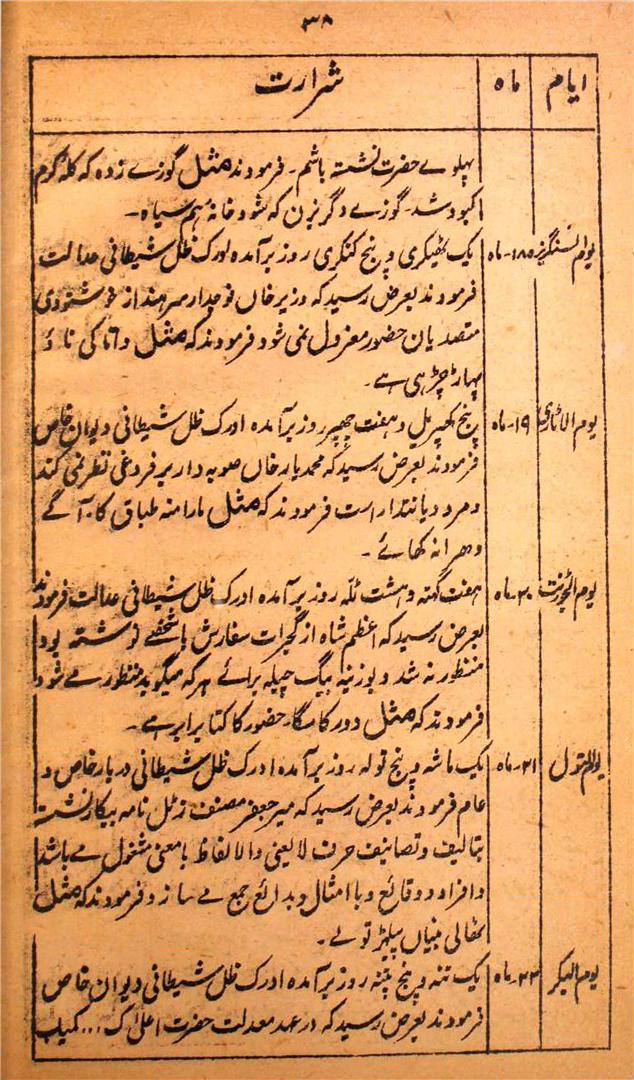 ۳۸
ایام ماہ شرارت
پہلوے حضرت نشستہ باشم۔ فرمودند مثل گوزے زدہ کہ کلہ گرم
کبود شد۔ گوزے دگر بزن کہ شود خانہ ہم سیاہ۔
۱۸۔ماہ یک ٹھیکری و پنج کنکری روز برآمدہ اورک ظل شیطانی عدالت
فرمودند بعرض رسید کہ وزیر خاں فوجدار سرہند از خوشنودی
متصدیان حضور معزول نمی شود فرمودند کہ مثل داتا کی ناؤ
پہاڑ چڑہی ہے۔
۱۹۔ماہ پنج کھپریل و ہفت چھپر روز برآمدہ اورک ظل شیطانی دیوان خاص
فرمودند بعرض رسید کہ محمد یار خاں صوبہ دار بر فروعی نظر نمی کند
و مرد دیانتدار است فرمودند کہ مثل مارا منہ طباق کا۔ آگے
دھرا نہ کھائے۔
۲۰۔ماہ ہفت گہتہ و ہشت ٹلہ روز برآمدہ ادرک ظل شیطانی عدالت فرمودند
بعرض رسید کہ اعظم شاہ از گجرات سفارش شخصے نوشتہ بود
منظور نہ شد و بوزینہ بیگ چیلہ برائے ہر کہ میگوید منظور مے شود
فرمودند کہ مثل دور کا سگا۔ حضور کا کتا برابر ہے۔
۲۱۔ماہ یک ماشہ و پنج تولہ روز برآمدہ ادرک ظل شیطانی دربار خاص و
عام فرمودند بعرض رسید کہ میر جعفر مصنف زٹل نامہ بیکار نشستہ
بتالیف و تصانیف حرف لایعنی والا الفاظ بامعنی مشغول مے باشد
و افراد و وقائع و با امثال و بدائع جمع مے سازد فرمودند کہ مثل
ٹھالی بنیاں سیلہڑ تولے۔
یوم البکر ۲۲۔ماہ یک تنہ و پنج پتہ روز برآمدہ ادرک ظل شیطانی دیوان خاص
فرمودند بعرض رسید کہ در عہد معدلت حضرت اعلیٰ ک... کمیاب